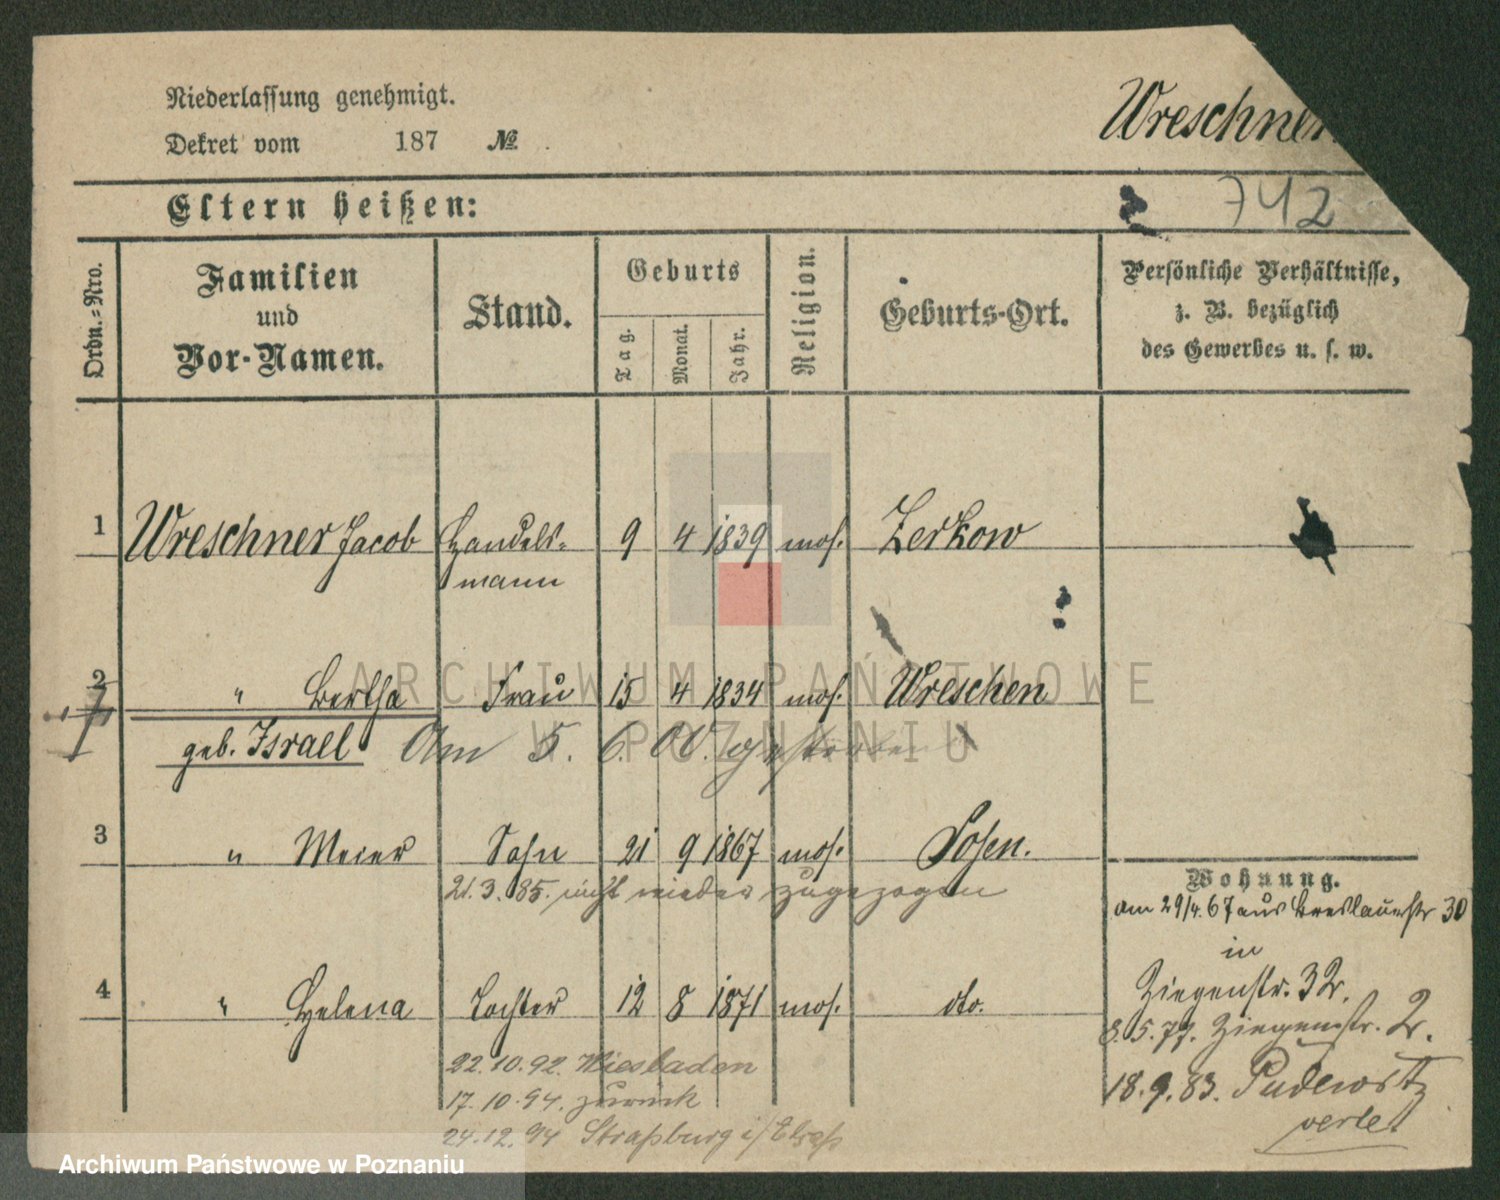 Niederlassung genehmigt.
Dekret vom 187 №
Wreschner
742
Eltern heißen:
Ordn.-Nro.
Familien und Vor-Namen.
Stand.
Geburts
Tag.
Monat.
Jahr.
Religion.
Geburts-Ort.
Persönliche Verhältnisse,
z. B. bezüglich
des Gewerbes u. s. w.
1 Wreschner Jacob Handels- 9 4 1839 mos. Zerkow
mann
2 " Bertha Frau 15 4 1834 mos. Wreschen
geb. Israel Am 5. 6. 00. gestorben
3 " Meier Sohn 21 9 1867 mos. Posen.
21.3.85. nicht wieder zugezogen
Wohnung.
am 29/4.67 aus Breslauerstr 30
in
Ziegenstr. 32.
4 " Helena Tochter 12 8 1871 mos. dto.
8.5.77. Ziegenstr. 2.
22.10.92. Wiesbaden
18.9.83. Pudewitz
17.10.94. zurück
24.12.94 Straßburg i/Elsaß
ARCHIWUM PAŃSTWOWE
W POZNANIU
Archiwum Państwowe w Poznaniu